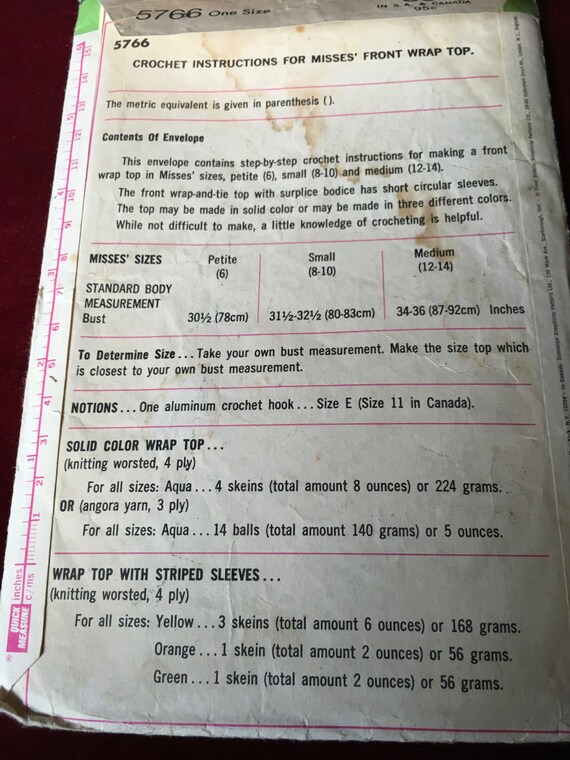 5766 One Size
IN U.S.A. & CANADA
95¢
5766
CROCHET INSTRUCTIONS FOR MISSES' FRONT WRAP TOP.
The metric equivalent is given in parenthesis ( ).
Contents Of Envelope
This envelope contains step-by-step crochet instructions for making a front
wrap top in Misses' sizes, petite (6), small (8-10) and medium (12-14).
The front wrap-and-tie top with surplice bodice has short circular sleeves.
The top may be made in solid color or may be made in three different colors.
While not difficult to make, a little knowledge of crocheting is helpful.
MISSES' SIZES Petite Small Medium
(6) (8-10) (12-14)
STANDARD BODY
MEASUREMENT
Bust 30½ (78cm) 31½-32½ (80-83cm) 34-36 (87-92cm) Inches
To Determine Size... Take your own bust measurement. Make the size top which
is closest to your own bust measurement.
NOTIONS... One aluminum crochet hook... Size E (Size 11 in Canada).
SOLID COLOR WRAP TOP...
(knitting worsted, 4 ply)
For all sizes: Aqua... 4 skeins (total amount 8 ounces) or 224 grams.
OR (angora yarn, 3 ply)
For all sizes: Aqua... 14 balls (total amount 140 grams) or 5 ounces.
WRAP TOP WITH STRIPED SLEEVES...
(knitting worsted, 4 ply)
For all sizes: Yellow... 3 skeins (total amount 6 ounces) or 168 grams.
Orange... 1 skein (total amount 2 ounces) or 56 grams.
Green... 1 skein (total amount 2 ounces) or 56 grams.
QUICK MEASURE
inches
c/ms
®